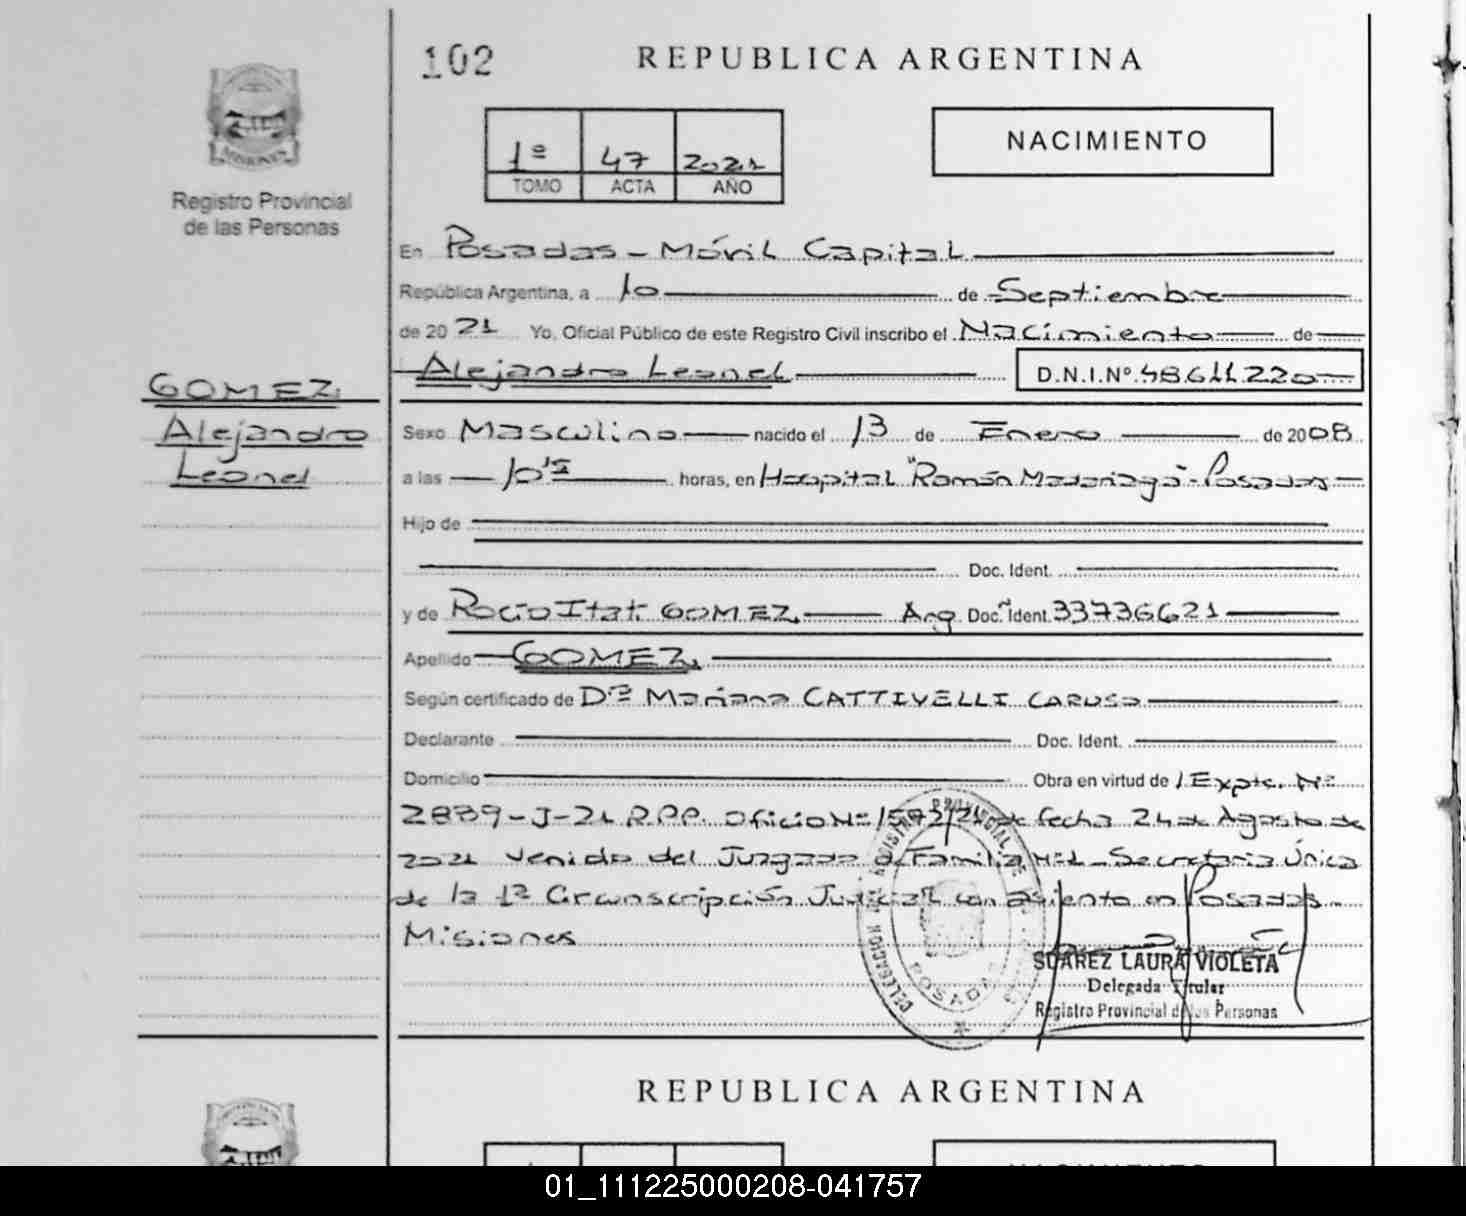 102
REPUBLICA ARGENTINA
MISIONES
Registro Provincial
de las Personas
1º 47 2021
TOMO ACTA AÑO
NACIMIENTO
En Posadas - Móvil Capital
República Argentina, a 10 de Septiembre
de 2021 Yo, Oficial Público de este Registro Civil inscribo el Nacimiento de
Alejandro Leonel D.N.I.Nº 48.611.220
GOMEZ
Alejandro
Leonel
Sexo Masculino nacido el 13 de Enero de 2008
a las 10 horas, en Hospital "Ramón Madariaga" - Posadas
Hijo de
Doc. Ident.
y de Rocío Itatí GOMEZ Arg. Doc. Ident. 33736621
Apellido GOMEZ
Según certificado de Dra Mariana CATTIVELLI CARUSO
Declarante Doc. Ident.
Domicilio Obra en virtud de / Expte. Nº
2839-J-21 R.P.P. Oficio Nº de fecha 24 de Agosto de
2021 venido del Juzgado de Familia Nº1 - Secretaria Única
de la 1ª Circunscripción Judicial con asiento en Posadas
Misiones
DELEGACION DEL REGISTRO PROVINCIAL DE
POSADAS
SUAREZ LAURA VIOLETA
Delegada Titular
Registro Provincial de las Personas
REPUBLICA ARGENTINA
NACIMIENTO
01_111225000208-041757